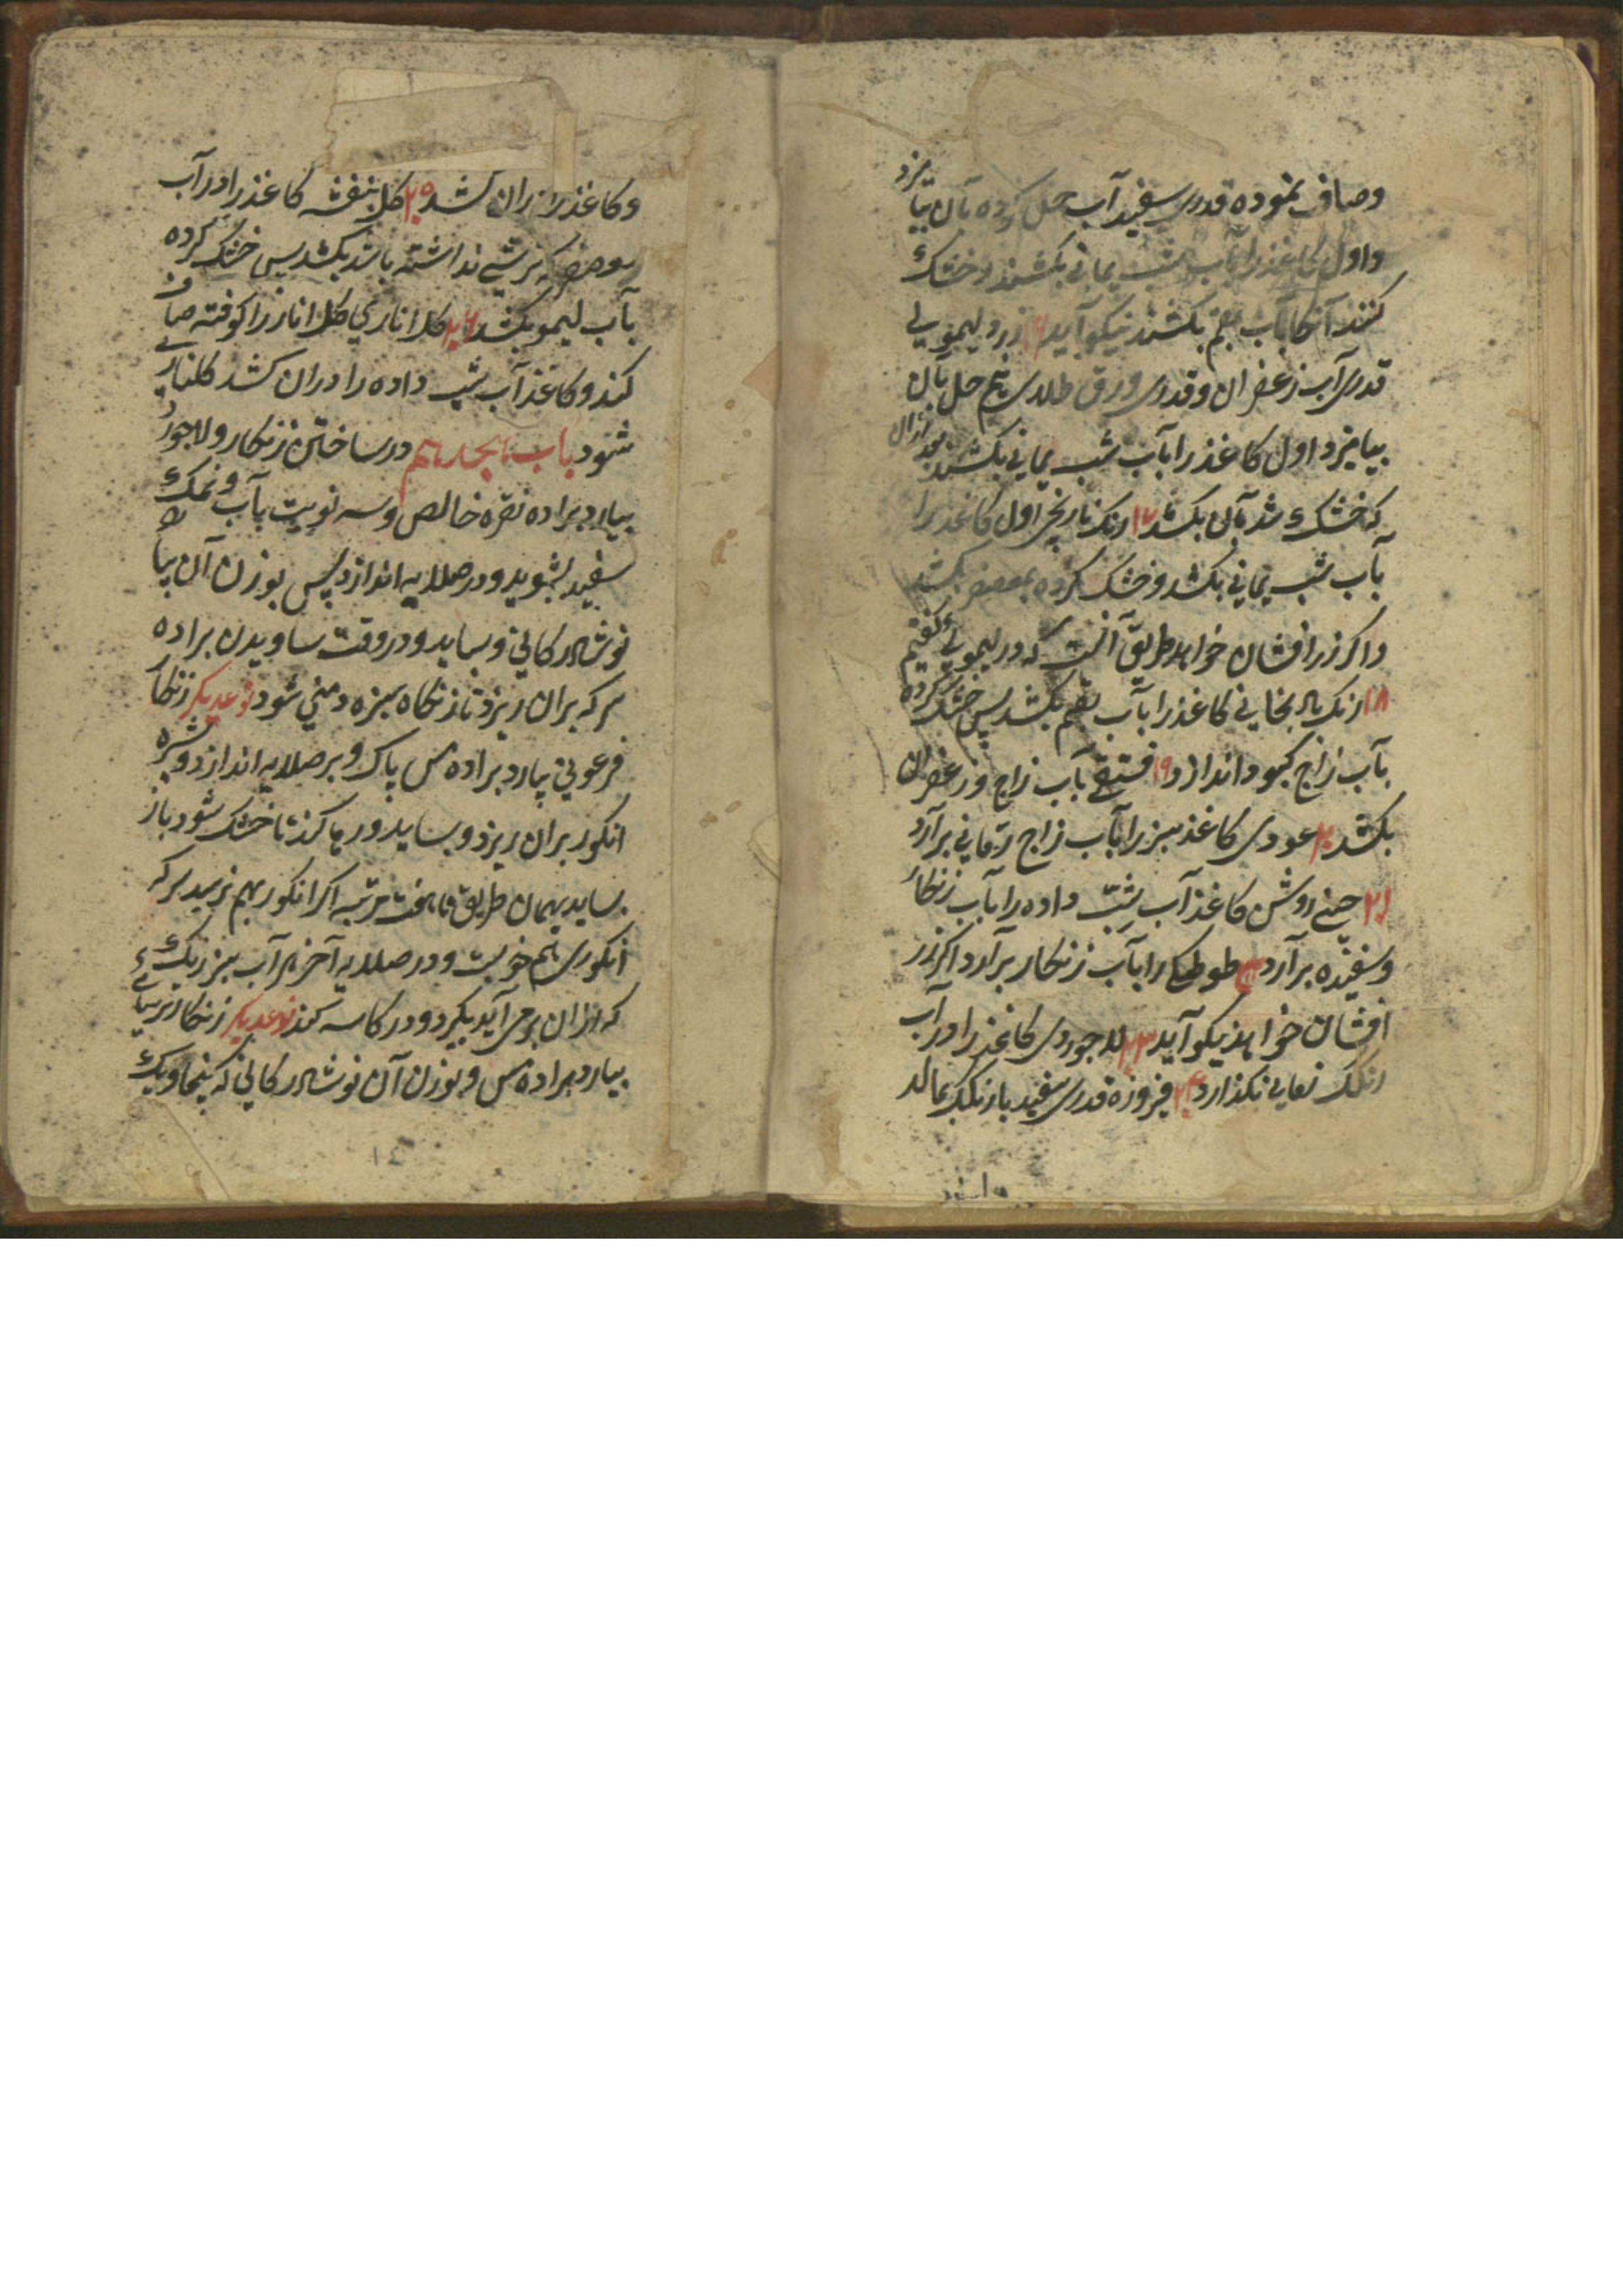 وصاف نموده قدری سفید آب حل کرده بآن بیامیزد
واول کاغذ را بآب شب یمانی بکشند و خشک
کنند آنکا بآب بقم بکشند نیکو آید ۱۶ زرد لیمویی
قدری آب زعفران وقدری ورق طلای هم حل بآن
بیامیزد اول کاغذ را بآب شب یمانی بکشند بعد ازان
که خشک شد بآن بکشد ۱۷ رنک نارنجی اول کاغذ را
بآب شب یمانی بکشد وخشک کرده بمعصفر بکشد
واکر زر افشان خواهد طریق آنست که در لیمویی کفتیم
۱۸ رنک کاغذ را بآب بقم بکشد پس خشک کرده
بآب زاج کبود اندازد ۱۹ فستقی بآب زاج وزعفران
بکشد ۲۰ عودی کاغذ سبز را بآب زاج برآرد
۲۱ روشن کاغذ آب شب داده را بآب زنکار
وسفیده برآرد ۲۲ طوطکی را بآب زنکار برآرد اکر زر
افشان خواهد نیکو آید ۲۳ لاجوردی کاغذ را در آب
رنکک نکذارد ۲۴ فیروزه قدری سفید با رنکک بمالد
وکاغذ را دران کشد ۲۵ کل بنفشه کاغذ را در آب
معصفر که ترشی نداشته باشد بکشد پس خشک کرده
بآب لیمو بکشد ۲۶ کل اناری کل انار را کوفته صاف
کند وکاغذ آب شب داده را دران کشد کلناری
شود باب هجدهم در ساختن زنکار ولاجورد
بیارد براده نقره خالص وسه نوبت بآب ونمک
سفید بشوید ودر صلایه اندازد پس بوزن آن بیالاید
نوشادر کانی وبساید ودر وقت ساویدن براده
سرکه بران ریزد تا زنکاه سبزه دمنی شود نوعدیکر زنکار
فرعونی بیارد براده مس پاک وبر صلایه اندازد وشیره
انکور بران ریزد وبساید ورها کند تا خشک شود باز
بساید بهمان طریق تا هفت مرتبه اکر انکور بهم نرسید سرکه
انکوری هم خوبست ودر صلایه آخر هر آب سبز رنک
که ازان برمی آید بکیرد ودر کاسه کند نوعدیکر زنکار
بیارد براده مس وبوزن آن نوشادر کانی که پنجاویک
۱۴